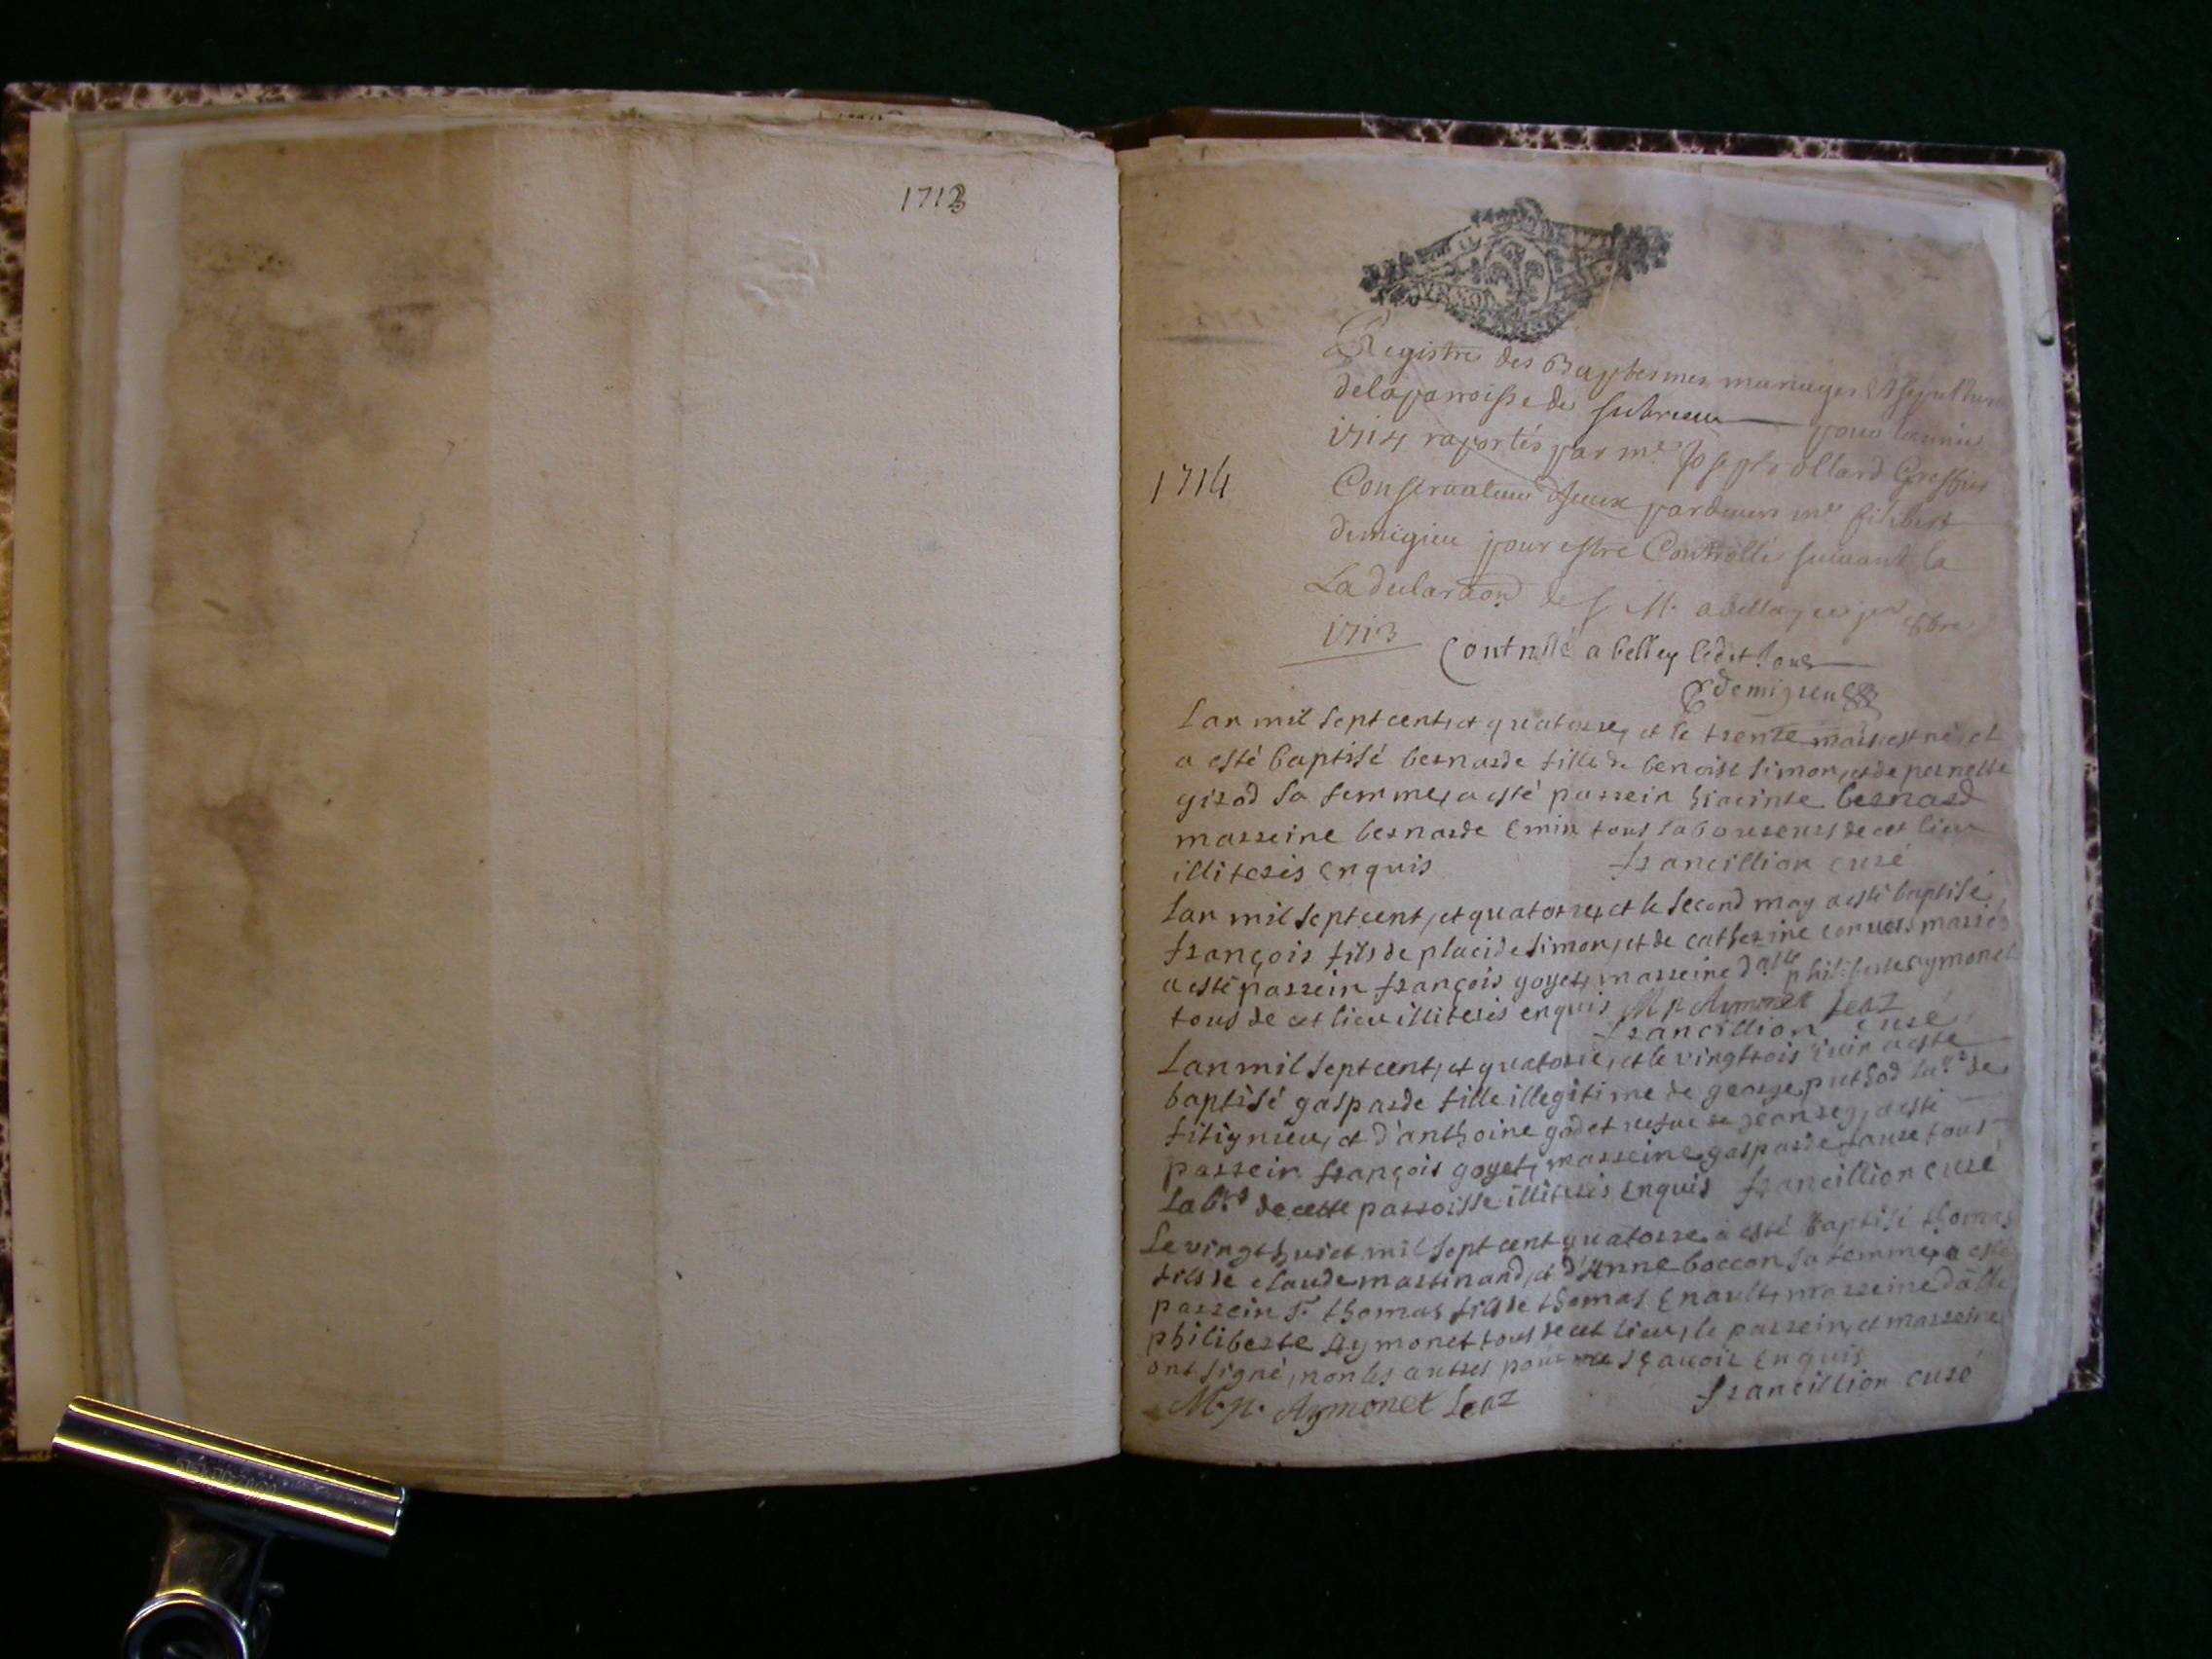 1713
Registre des Baptesmes mariages Et sepultures
de la parroisse de pour lannée
1714 raportés par me. Joseph ollard Greffier
Conservateur d'iceux pardevers me filibert
demigieu pour estre Controllé suivant la
La declaraon de S M. a
1713 Controllé a belley ledit Jour
demigieu
1714
Lan mil sept cent, et quatorze, et le trente mars, est né, et
a esté baptisé bernarde fille de benoist simon, et de pernette
girod sa femme, a esté parrein hiacinte bernard
marreine bernarde Emin tous laboureurs de cet lieu
illiterés enquis francillion curé
Lan mil sept cent, et quatorze, et le second may a esté baptisé,
françois fils de placide simon, et de catherine convers mariés
a esté parrein françois goyet, marreine dalle philiberte aymonet
tous de cet lieu illiterés enquis M p Aymonet Jenz
francillion curé
Lan mil sept cent, et quatorze, et le vingttrois iuin a esté
baptisé gasparde fille illegitime de george puthod lar. de
fitignieu, et d'anthoine godet vefue de Jean rey, a esté
parrein françois goyet, marreine gasparde tous
labrs de cette parroisse illiterés enquis francillion curé
Le vingthuict mil sept cent quatorze, a esté baptisé thomas
fils de claude martinand, et d'Anne boccon sa femme, a esté
parrein sr. thomas fils de thomas Enault, marreine dalle
philiberte Aymonet tous de cet lieu, le parrein, et marreine
ont signé, non les autres pour ne sçavoir enquis
M. p. Aymonet Jenz francillion curé